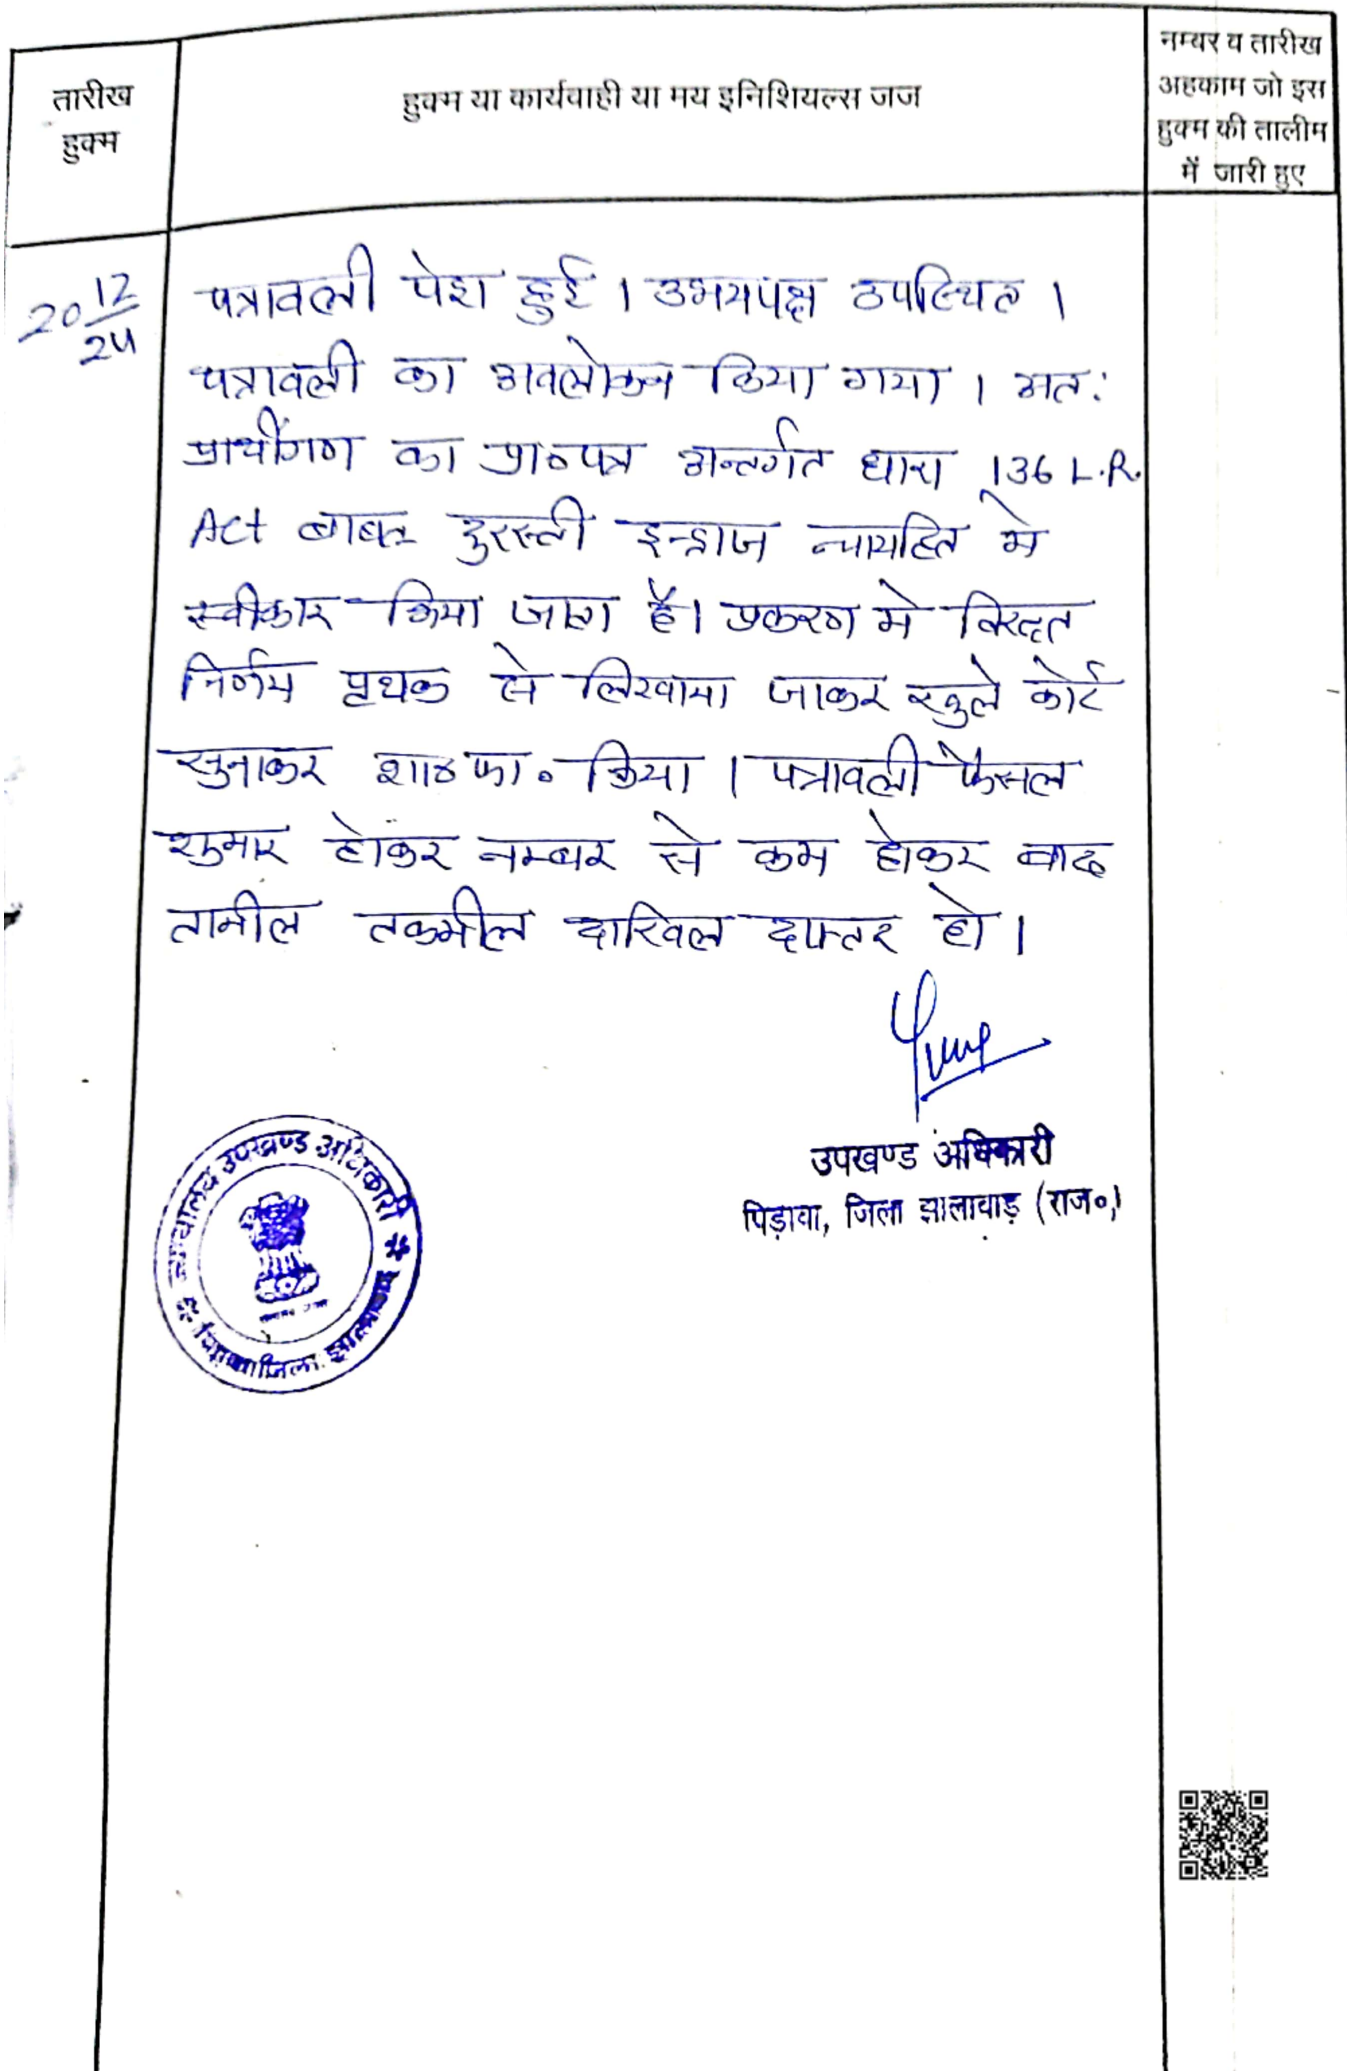 तारीख
हुक्म
हुक्म या कार्यवाही या मय इनिशियल्स जज
नम्बर व तारीख
अहकाम जो इस
हुक्म की तालीम
में जारी हुए
20 12/24
पत्रावली पेश हुई । उभयपक्ष उपस्थित ।
पत्रावली का अवलोकन किया गया । अत:
प्रार्थीगण का प्रा०पत्र अन्तर्गत धारा 136 L.R.
Act बाबत दुरस्ती इन्द्राज न्यायहित मे
स्वीकार किया जाता है। प्रकरण मे विस्तृत
निर्णय पृथक से लिखाया जाकर खुले कोर्ट
सुनाकर शा० फा० किया । पत्रावली फैसल
शुमार होकर नम्बर से कम होकर बाद
तामील तकमील दाखिल दफ्तर हो ।
उपखण्ड अधिकारी
पिड़ावा, जिला झालावाड़ (राज०)
न्यायालय उपखण्ड अधिकारी
पिड़ावा जिला झालावाड़